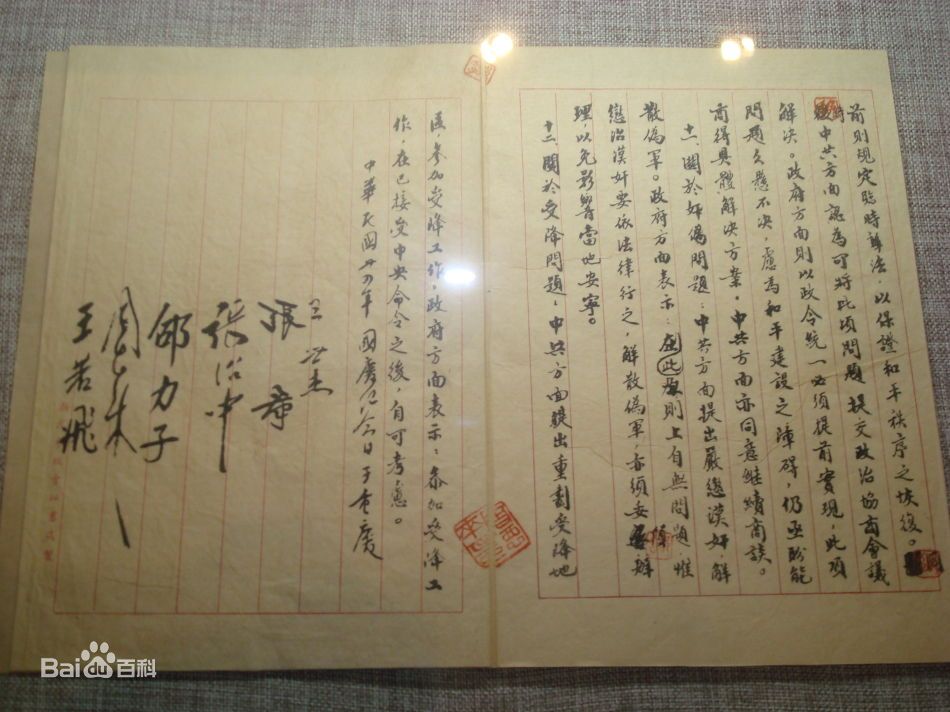 前則規定臨時辦法，以保證和平秩序之恢復。
時中共方面認為可將此項問題提交政治協商會議
解决。政府方面則以政令統一必須提前實現，此項
問題久懸不决，慮為和平建設之障碍，仍亟盼能
商得具體解决方案。中共方面亦同意繼續商談。
十一、關於奸偽問題：中共方面提出嚴懲漢奸解
散偽軍。政府方面表示：此在原則上自無問題，惟
懲治漢奸要依法律行之，解散偽軍亦須妥慎辦
理，以免影響當地安寧。
十二、關於受降問題：中共方面提出重劃受降地
區，參加受降工作。政府方面表示：參加受降工
作，在已接受中央命令之後，自可考慮。
中華民國卅四年國慶紀念日于重慶
王世杰
張羣
張治中
邵力子
周恩来
王若飛
Baidu百科